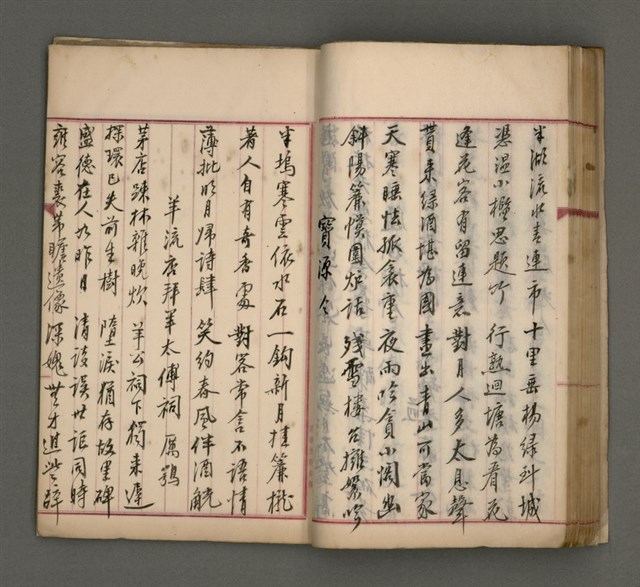 半湖流水青連市 十里垂楊綠到城
憑溫小檻思題竹 行熟迴塘為看花
逢花客有留連意 對月人多太息聲
貰來綠酒堪為國 畫出青山可當家
天寒睡怯孤衾重 夜雨吟貪小閣幽
斜陽簾幙圍爐話 殘雪樓台擁鼻吟
寶源令
半塢寒雲依水石 一鈎新月挂簾櫳
著人自有奇香處 對客常含不語情
薄批明月歸詩肆 笑約春風伴酒觥
羊流店拜羊太傅祠 厲鶚
茅店踈林雜晚炊 羊公祠下獨來遲
探環已失前生樹 墮淚猶存故里碑
盛德在人如昨日 清談誤世詎同時
雍容裘帶瞻遺像 深媿無才進些辭